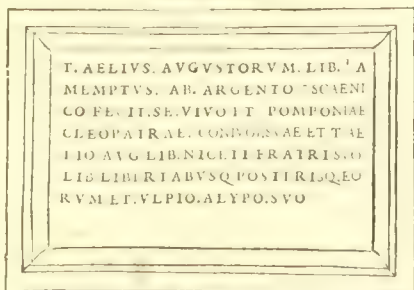 T. AELIVS. AVGVSTORVM. LIB. A
MEMPTVS. AB. ARGENTO SCAENI
CO FECIT. SE. VIVO ET POMPONIAE
CLEOPATRAE. ET T AE
LIO AVG LIB. NICETI FRATRIS.
LIB LIBERTABVSQ POSTERISQ. EO
RVM ET. VLPIO. ALYPO. SVO